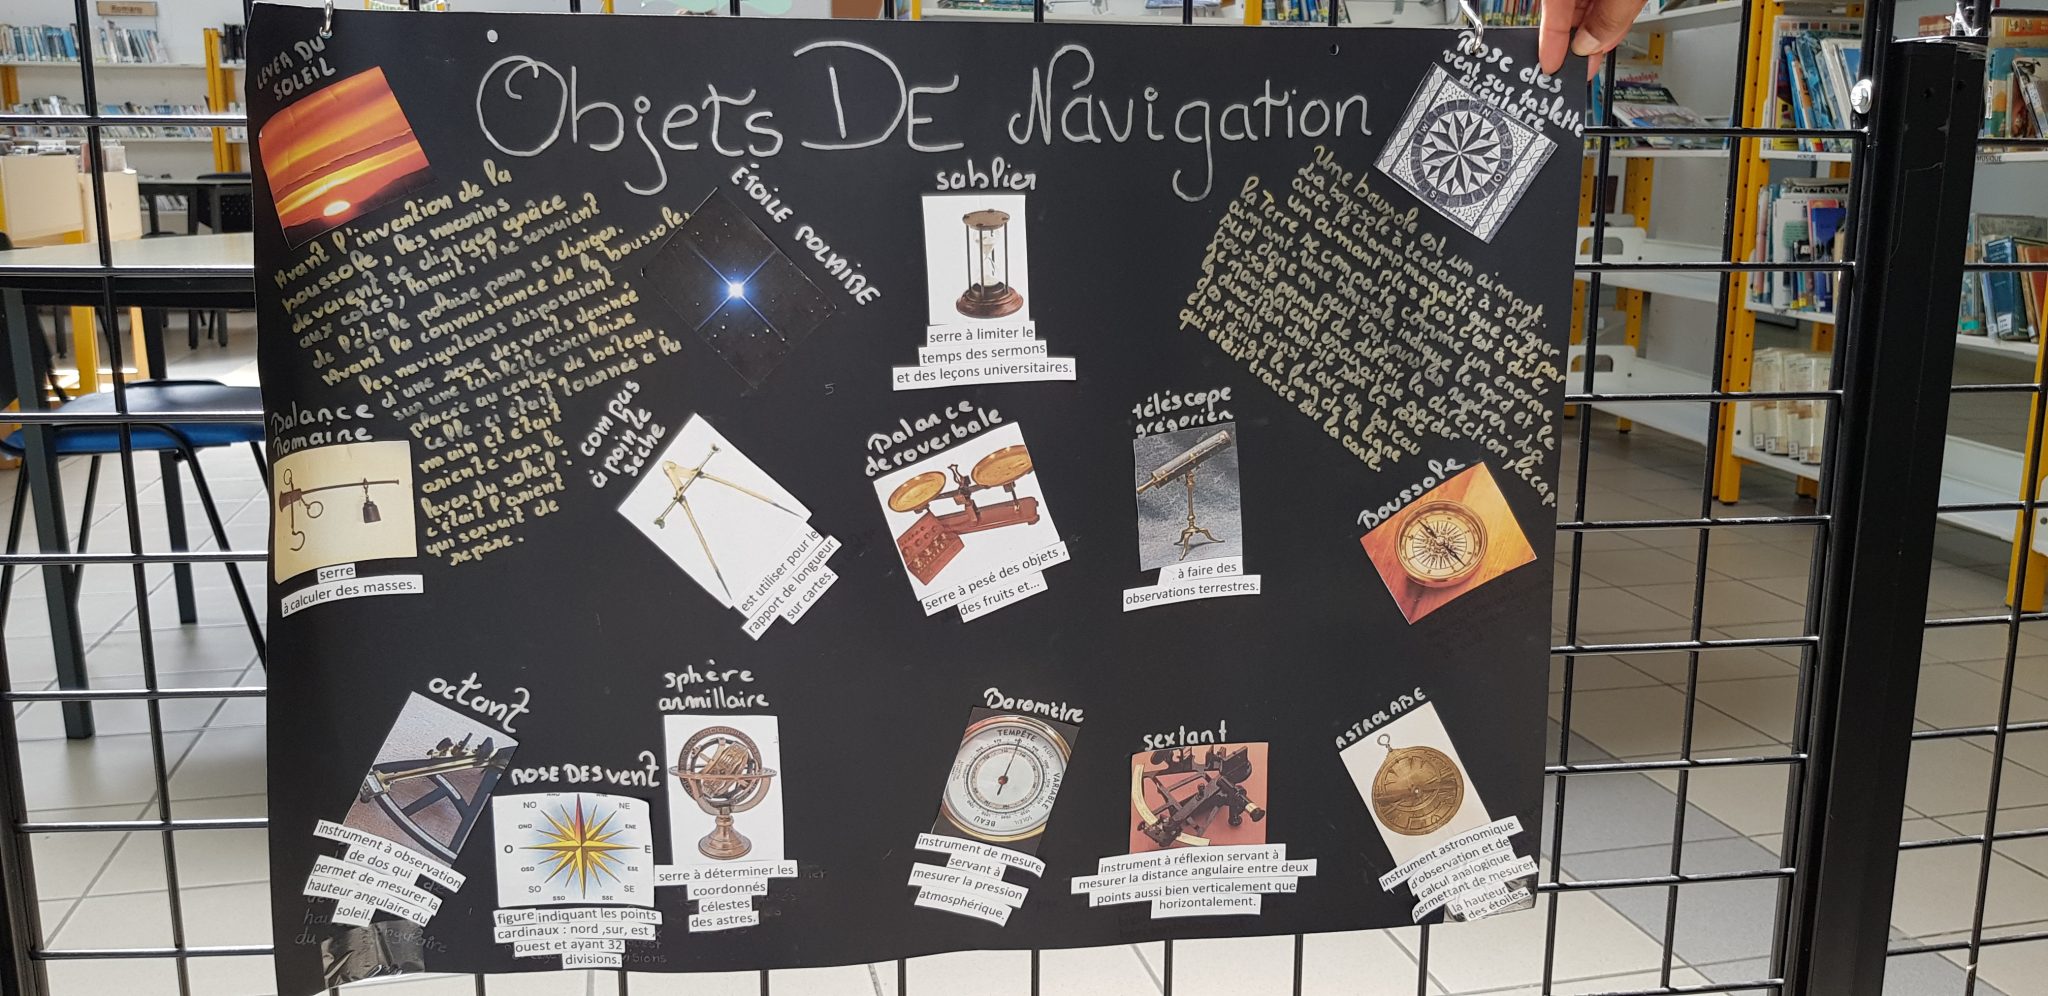 Objets DE Navigation
LEVER DU
SOLEIL
Avant l'invention de la
boussole, les marins
devaient se diriger grâce
aux côtes, la nuit, il se servaient
de l'étoile polaire pour se diriger.
Avant la connaissance de la boussole,
les navigateurs disposaient
d'une rose des vents dessinée
sur une tablette circulaire
placée au centre de bateau.
Celle-ci était tournée à la
main et était
orienté vers le
lever du soleil :
c'était l'orient
qui servait de
repere.
ÉTOILE POLAIRE
sablier
serre à limiter le
temps des sermons
et des leçons universitaires.
Rose des
vent sur tablette
circulaire
Une boussole est un aimant.
La boussole à tendance à s'aligner
avec le champ magnétique créé par
un aimant plus gros est à dire
la Terre se comporte comme un énorme
aimant
une boussole indique le nord et le
sud donc on peut toujours se repérer.
de navigat en essayait de garder
la direction choisie sur la rose
des vents ainsi l'axe du bateau
était dirigé le long de la ligne
qui était tracé sur la carte.
Balance
Romaine
serre
à calculer des masses.
compas
à pointe
sèche
est utiliser pour le
rapport de longueur
sur cartes.
Balance
de roverbale
serre à pesé des objets ,
des fruits et...
téléscope
grégorien
à faire des
observations terrestres.
Boussole
octant
instrument à observation
de dos qui
permet de mesurer la
hauteur angulaire du
soleil.
ROSE DES VENT
NO
NE
ONO
ENE
O
E
OSO
ESE
SO
SE
SSO
SSE
figure indiquant les points
cardinaux : nord ,sur, est ,
ouest et ayant 32
divisions.
sphère
armillaire
serre à déterminer les
coordonnés
célestes
des astres.
Baromètre
TEMPÊTE
VARIABLE
BEAU
instrument de mesure
servant à
mesurer la pression
atmosphérique.
sextant
instrument à réflexion servant à
mesurer la distance angulaire entre deux
points aussi bien verticalement que
horizontalement.
ASTROLABE
instrument astronomique
d'observation et de
calcul analogique
permettant de mesurer
la hauteur
des étoiles.